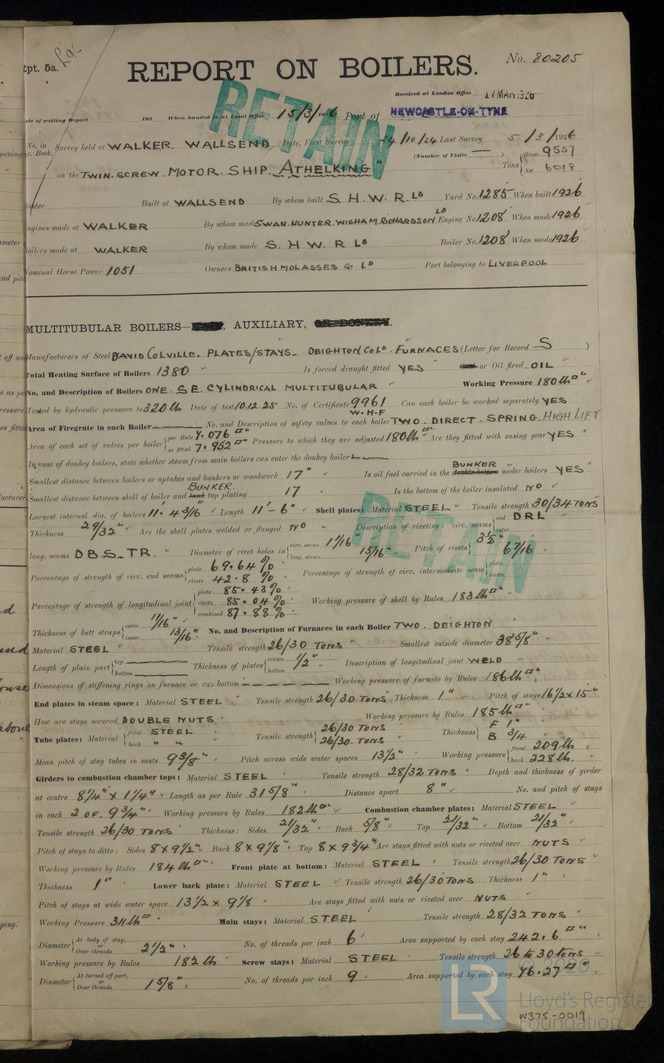 Rpt. 5a.
REPORT ON BOILERS.
No. 80205
Received at London Office 17 MAR 1926
Date of writing Report 192 When handed in at Local Office 15/3/1926 Port of NEWCASTLE-ON-TYNE
RETAIN
No. in Survey held at WALKER. WALLSEND Date, First Survey 24/10/24 Last Survey 5/3/1926
Reg. Book. (Number of Visits — ) Gross 9557
on the TWIN. SCREW. MOTOR. SHIP. "ATHELKING" Tons Net 6018
Master Built at WALLSEND By whom built S. H. W. R. LD Yard No. 1285 When built 1926
Engines made at WALKER By whom made SWAN. HUNTER. WIGHAM. RICHARDSON LD Engine No. 1208 When made 1926
Boilers made at WALKER By whom made S. H. W. R LD Boiler No. 1208 When made 1926
Nominal Horse Power 1051 Owners BRITISH MOLASSES Co LD Port belonging to LIVERPOOL
MULTITUBULAR BOILERS—MAIN, AUXILIARY, OR DONKEY.
Manufacturers of Steel DAVID COLVILLE. PLATES/STAYS. DEIGHTON Co LD. FURNACES (Letter for Record S )
Total Heating Surface of Boilers 1380 Is forced draught fitted YES Oil fired OIL
No. and Description of Boilers ONE. S.E. CYLINDRICAL MULTITUBULAR Working Pressure 180 lb □"
Tested by hydraulic pressure to 320 lb Date of test 10.12.25 No. of Certificate 9961 Can each boiler be worked separately YES
W.H.F
Area of Firegrate in each Boiler — No. and Description of safety valves to each boiler TWO. DIRECT. SPRING. HIGH LIFT
Area of each set of valves per boiler per Rule 7.076 □" as fitted 7.952 □" Pressure to which they are adjusted 180 lb □" Are they fitted with easing gear YES
In case of donkey boilers, state whether steam from main boilers can enter the donkey boiler —
Smallest distance between boilers or uptakes and bunkers or woodwork 17" Is oil fuel carried in the BUNKER double bottom under boilers YES
Smallest distance between shell of boiler and BUNKER tank top plating 17 Is the bottom of the boiler insulated NO
Largest internal dia. of boilers 11'. 4 9/16" Length 11'-6" Shell plates: Material STEEL Tensile strength 30/34 TONS
Thickness 29/32" Are the shell plates welded or flanged NO Description of riveting: circ. seams end DRL inter.
long. seams DBS. TR. Diameter of rivet holes in circ. seams 1 1/16 long. seams 15/16" Pitch of rivets 3 1/2" 6 7/16
RETAIN
Percentage of strength of circ. end seams plate 69.64% rivets 42.8% Percentage of strength of circ. intermediate seam plate rivets
Percentage of strength of longitudinal joint plate 85.43% rivets 85.04% combined 87.88% Working pressure of shell by Rules 183 lb □"
Thickness of butt straps outer 11/16" inner 13/16" No. and Description of Furnaces in each Boiler TWO. DEIGHTON
Material STEEL Tensile strength 26/30 TONS Smallest outside diameter 38 5/8"
Length of plain part top bottom Thickness of plates crown bottom 1/2" Description of longitudinal joint WELD
Dimensions of stiffening rings on furnace or c.c. bottom Working pressure of furnace by Rules 186 lb □"
End plates in steam space: Material STEEL Tensile strength 26/30 TONS Thickness 1" Pitch of stays 16 1/2 x 15"
How are stays secured DOUBLE NUTS Working pressure by Rules 185 lb □"
Tube plates: Material front STEEL back " " Tensile strength 26/30 TONS 26/30 TONS Thickness F 1" B 3/4
Mean pitch of stay tubes in nests 9 3/8" Pitch across wide water spaces 13 1/2" Working pressure front 209 lb back 228 lb
Girders to combustion chamber tops: Material STEEL Tensile strength 28/32 TONS Depth and thickness of girder
at centre 8 1/4" x 1 1/4" Length as per Rule 31 5/8" Distance apart 8" No. and pitch of stays
in each 2 OF. 9 3/4" Working pressure by Rules 182 lb □" Combustion chamber plates: Material STEEL
Tensile strength 26/30 TONS Thickness: Sides 21/32" Back 5/8" Top 21/32" Bottom 21/32"
Pitch of stays to ditto: Sides 8 x 9 1/2" Back 8" x 9 7/8" Top 8 x 9 3/4" Are stays fitted with nuts or riveted over NUTS
Working pressure by Rules 184 lb □" Front plate at bottom: Material STEEL Tensile strength 26/30 TONS
Thickness 1" Lower back plate: Material STEEL Tensile strength 26/30 TONS Thickness 1"
Pitch of stays at wide water space 13 1/2 x 9 7/8 Are stays fitted with nuts or riveted over NUTS
Working Pressure 311 lb □" Main stays: Material STEEL Tensile strength 28/32 TONS
Diameter At body of stay, or Over threads 2 1/2" No. of threads per inch 6 Area supported by each stay 242.6 □"
Working pressure by Rules 182 lb Screw stays: Material STEEL Tensile strength 26 to 30 tons
Diameter At turned off part, or Over threads 1 5/8" No. of threads per inch 9 Area supported by each stay 76.27 □"
LR
Lloyd's Register
Foundation
W375-0019